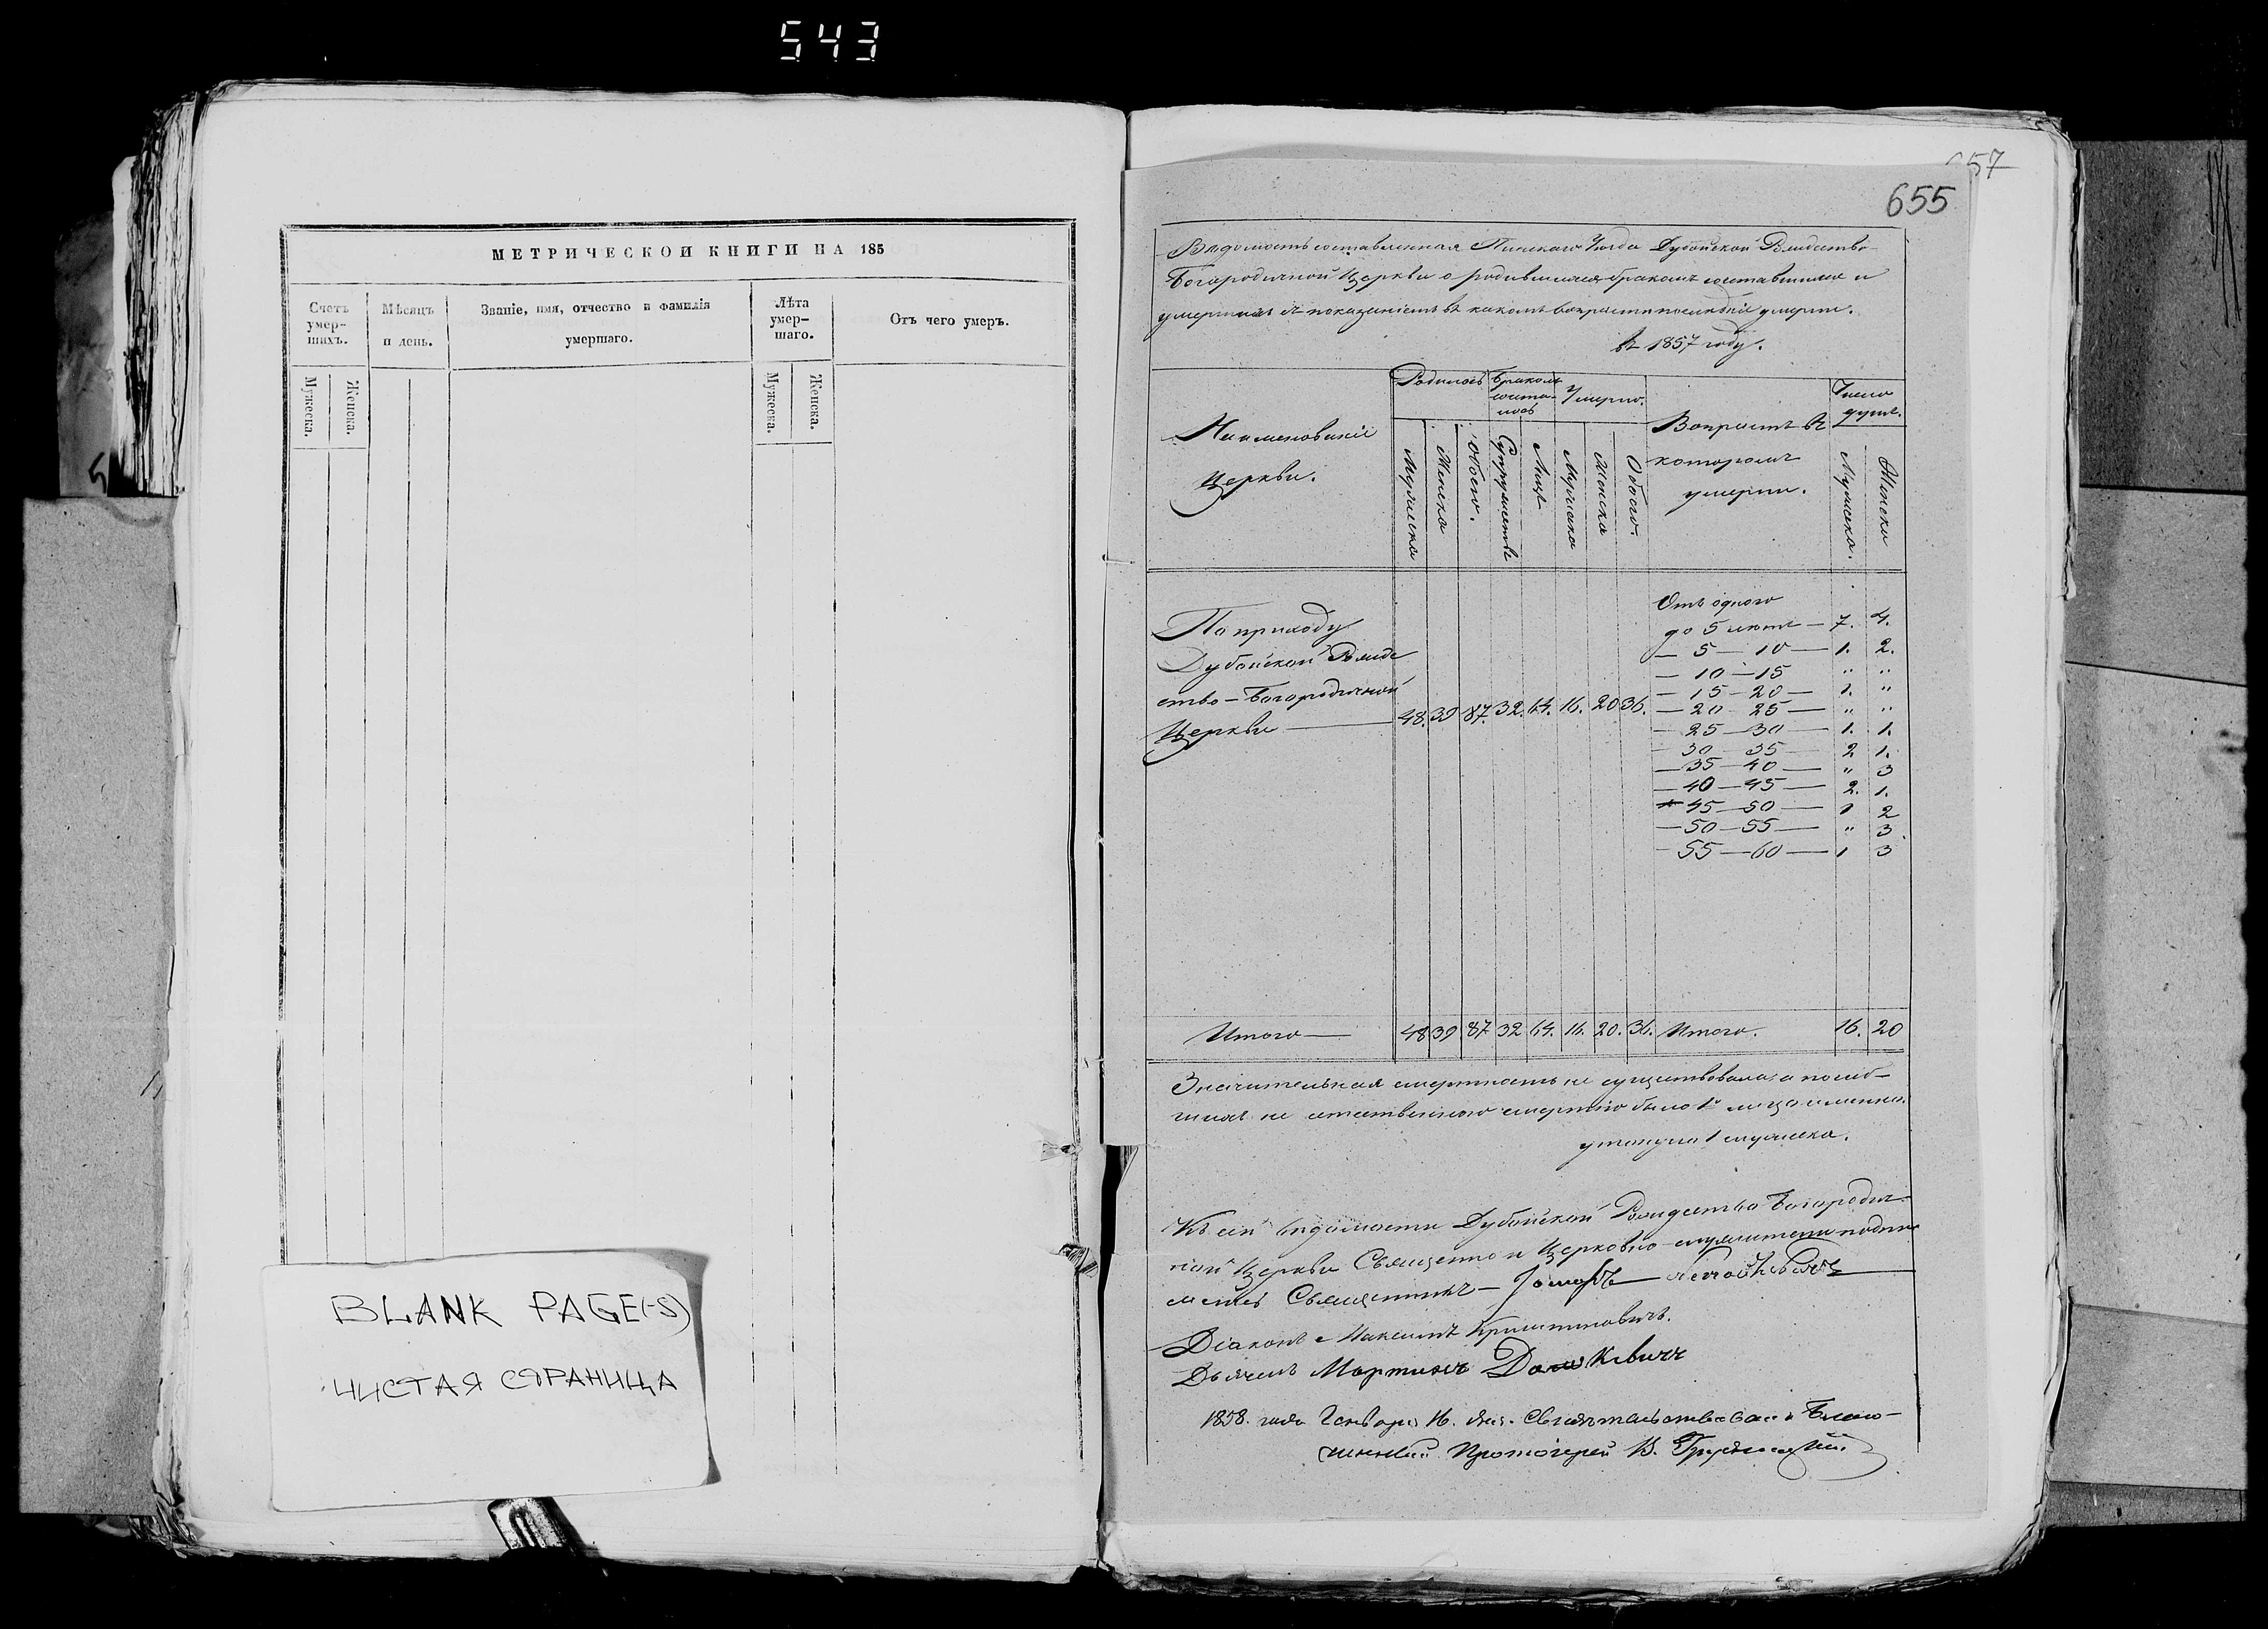 543
МЕТРИЧЕСКОЙ КНИГИ НА 185
Счетъ умер-шихъ.
Мѣсяцъ и день.
Званіе, имя, отчество и фамилія умершаго.
Лѣта умер-шаго.
Отъ чего умеръ.
Мужеска.
Женска.
Мужеска.
Женска.
BLANK PAGE(-S)
ЧИСТАЯ СТРАНИЦА
57
655
Вѣдомость составленная Пинскаго Уѣзда Дубойской Рождество-
Богородичной Церкви о родившихся бракомъ сочетавшихся и
умершихъ съ показаніемъ въ какомъ возрастѣ послѣдніе умерли.
въ 1857 году.
Наименованіе Церкви.
Родилось
Бракомъ сочета-лось
Умерло.
Возрастъ въ которомъ умерли.
Число душъ.
Мужеска
Женска
Обоего.
Супружествъ
Лицъ
Мужеска
Женска
Обоего.
Мужеска.
Женска
По приходу
Дубойской Рожде
ство-Богородичной
Церкви — 48. 39 87. 32. 64. 16. 20 36.
Отъ одного
до 5 лѣтъ — 7. 4.
— 5 — 10 — 1. 2.
— 10 — 15 " "
— 15 — 20 — 1. "
— 20 — 25 — " "
— 25 — 30 — 1. 1.
— 30 — 35 — 2 1.
— 35 — 40 — " 3
— 40 — 45 — 2. 1.
— 45 — 50 — 1 2
— 50 — 55 — " 3.
— 55 — 60 — 1 3
Итого — 48 39 87 32 64. 16. 20. 36. Итого. 16. 20
Значительная смертность не существовала, а погиб-
шихъ не естественною смертію было 1 лицо именно
утонуло 1 мужеска.
Къ сей вѣдомости Дубойской Рождество Богородич-
ной Церкви Священно и Церковно-служители подпи
Священникъ — Іосифъ
Діаконъ Максимъ
Дьячекъ Мартинъ
1858. года Генваря 16. дня. Свидѣтельствовалъ Благо-
чинный Протоіерей В.